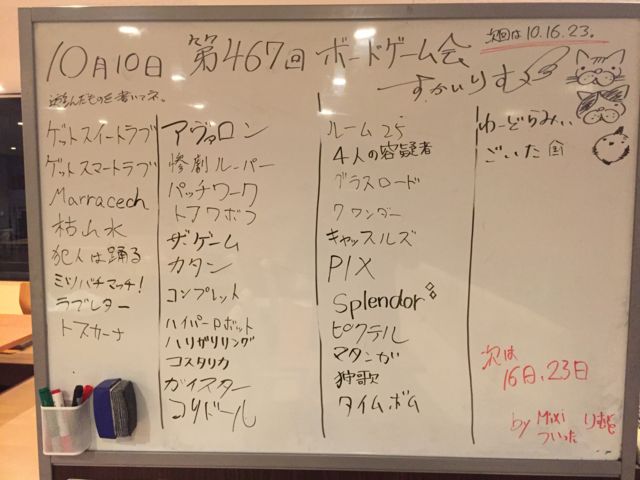 10月10日 第467回 ボードゲーム会
次回は10.16.23.
すかいりむ
遊んだものを書いてネ。
ゲットスイートラブ
ゲットスマートラブ
Marracech
枯山水
犯人は踊る
ミツバチマッチ!
ラブレター
トスカーナ
アヴァロン
惨劇ルーパー
パッチワーク
ザ・ゲーム
カタン
コンプレット
ハイパーロボット
ハリガリリング
コスタリカ
ガイスター
コリドール
ルーム25
4人の容疑者
グラスロード
クワンダー
キャッスルズ
PIX
Splendor
ピクテル
マタンガ
狩歌
タイムボム
わーどらみぃ
ごいた
次は
16日、23日
by Mixi
ついった